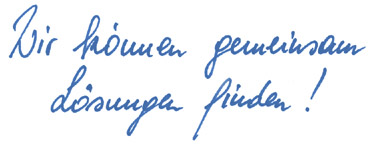 Wir können gemeinsam
Lösungen finden!